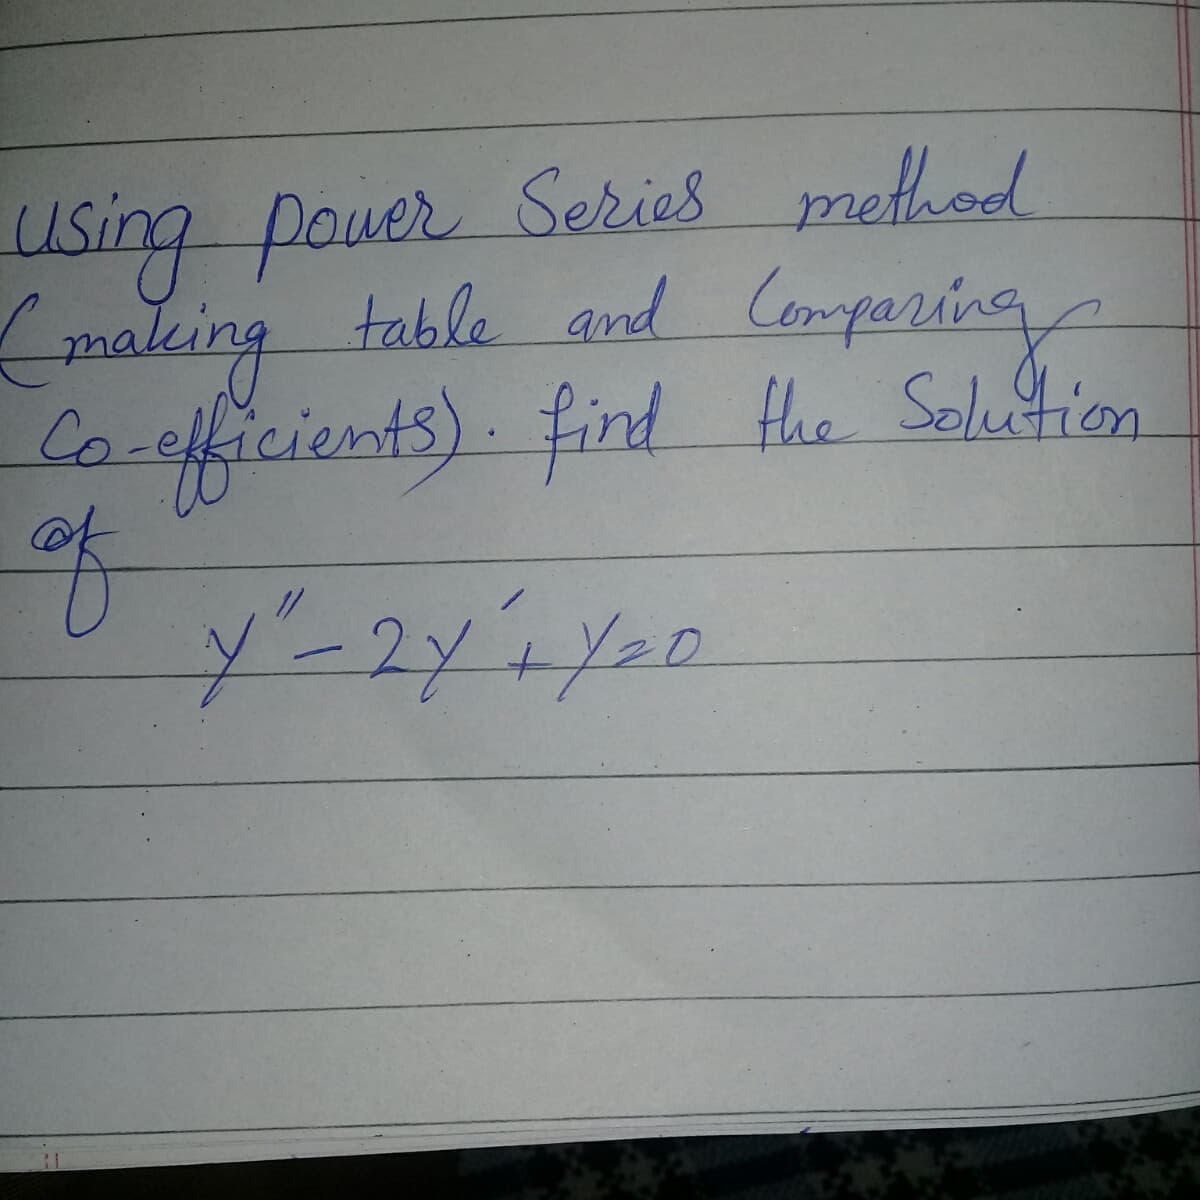 using power Series method
(making table and Comparing
Co-efficients). find the Solution
of
y" - 2y' + y = 0